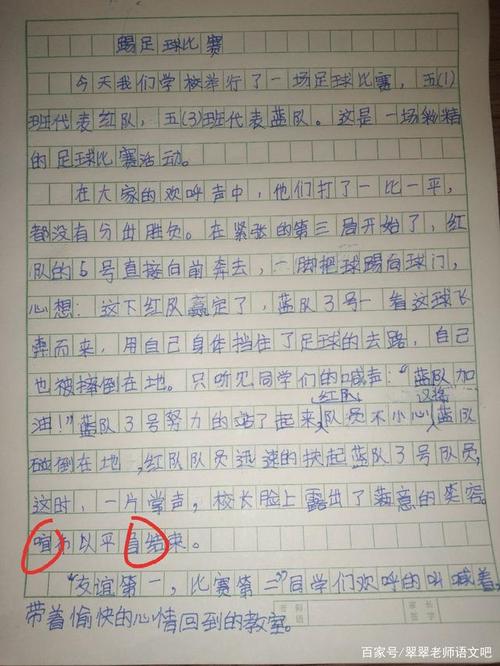 踢足球比赛
今天我们学校举行了一场足球比赛，五(1)
班代表红队，五(3)班代表蓝队。这是一场精
的足球比赛活动。
在大家的欢呼声中，他们打了一比一平，
都没有分出胜负。在紧张的第三局开始了，红
队的5号直接向前奔去，一脚把球踢向球门，
心想：这下红队赢定了，蓝队3号一看这球飞
奔而来，用自己身体挡住了足球的去路，自己
也被摔倒在地。只听见同学们的喊声："蓝队加
红队
油！"蓝队3号努力的站了起来，队员不小心蓝队
碰倒在地，红队队员迅速的扶起蓝队3号队员，
这时，一片掌声，校长脸上露出了满意的笑容。
宣布以平局结束。
"友谊第一，比赛第二"同学们欢呼的叫喊着，
带着愉快的心情回到的教室。
签师
字长
百家号/翠翠老师语文吧